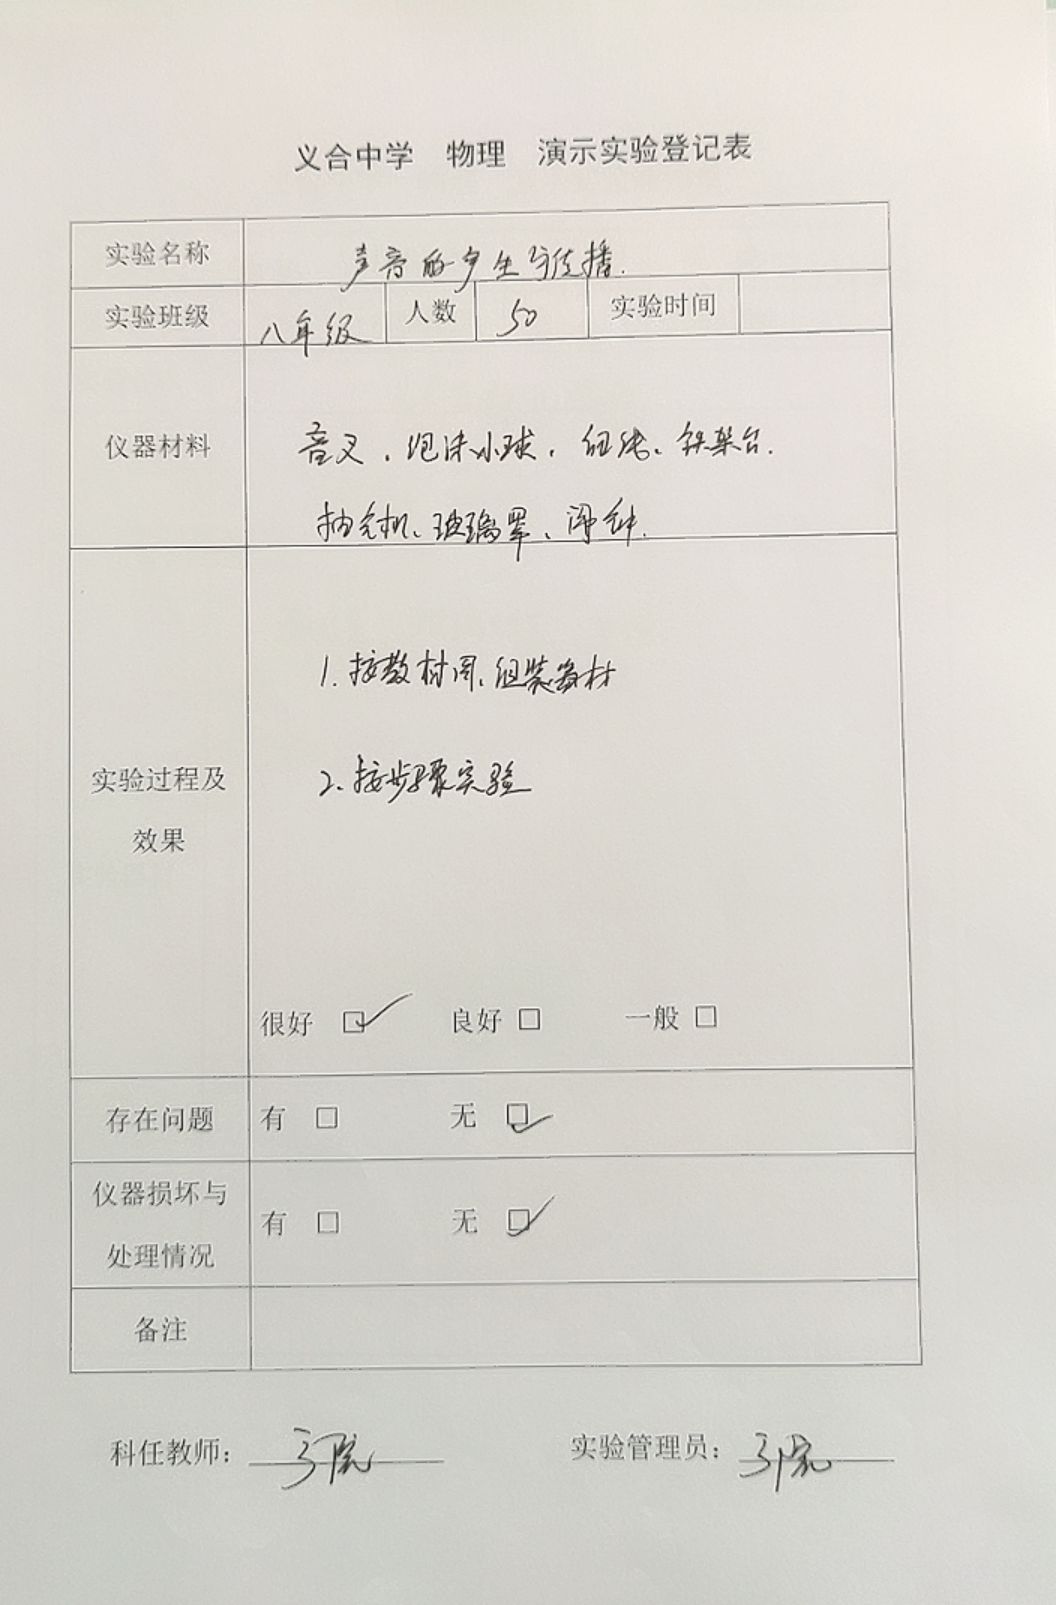 义合中学 物理 演示实验登记表
实验名称 声音的产生与传播.
实验班级 八年级 人数 50 实验时间
仪器材料
音叉、泡沫小球、细线、铁架台.
抽气机、玻璃罩、闹钟.
实验过程及
效果
1. 按教材图、组装器材
2、按步骤实验
很好 ☑ 良好 □ 一般 □
存在问题 有 □ 无 ☑
仪器损坏与
处理情况
有 □ 无 ☑
备注
科任教师：
实验管理员：